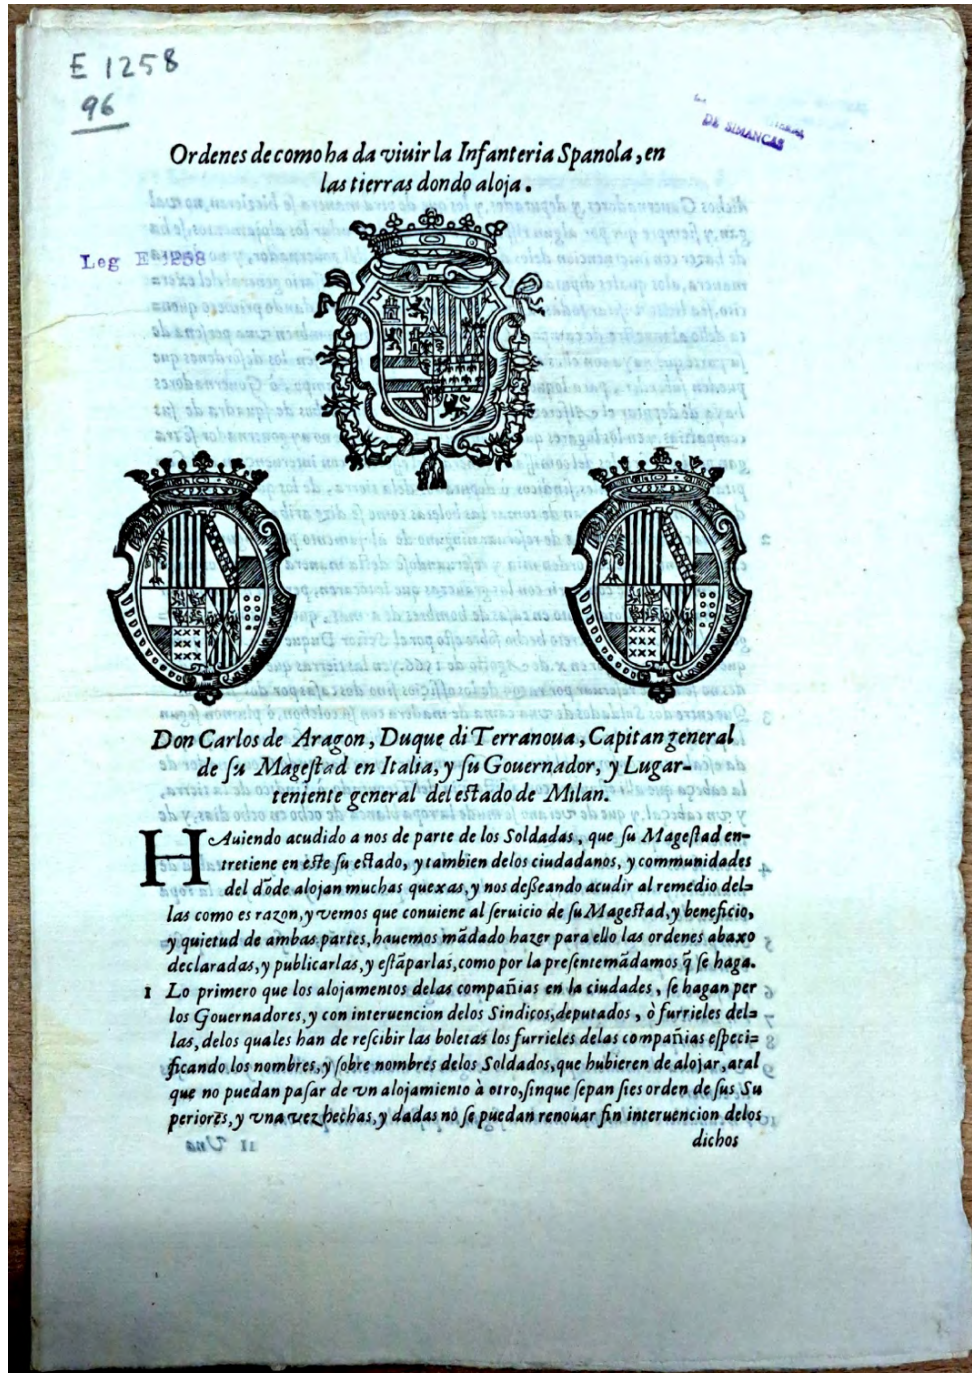 E 1258
96
DE SIMANCAS
Ordenes de como ha da viuir la Infanteria Spanola, en
las tierras dondo aloja.
Leg E 1258
Don Carlos de Aragon, Duque di Terranoua, Capitan general
de ſu Mageſtad en Italia, y ſu Gouernador, y Lugar-
teniente general del eſtado de Milan.
HAuiendo acudido a nos de parte de los Soldadas, que ſu Mageſtad en-
tretiene en eſte ſu eſtado, y tambien delos ciudadanos, y communidades
del dõde alojan muchas quexas, y nos deſſeando acudir al remedio del=
las como es razon, y vemos que conuiene al ſeruicio de ſu Mageſtad, y beneficio,
y quietud de ambas partes, hauemos mãdado hazer para ello las ordenes abaxo
declaradas, y publicarlas, y eſtãparlas, como por la preſente mãdamos q̃ ſe haga.
1 Lo primero que los alojamentos delas compañias en la ciudades, ſe hagan per
los Gouernadores, y con interuencion delos Sindicos, deputados, ò furrieles del=
las, delos quales han de reſcibir las boletas los furrieles delas compañias eſpeci=
ficando los nombres, y ſobre nombres delos Soldados, que hubieren de alojar, atal
que no puedan paſar de vn alojamiento à otro, ſinque ſepan ſies orden de ſus Su
periores, y vna vez hechas, y dadas no ſe puedan renouar ſin interuencion delos
dichos